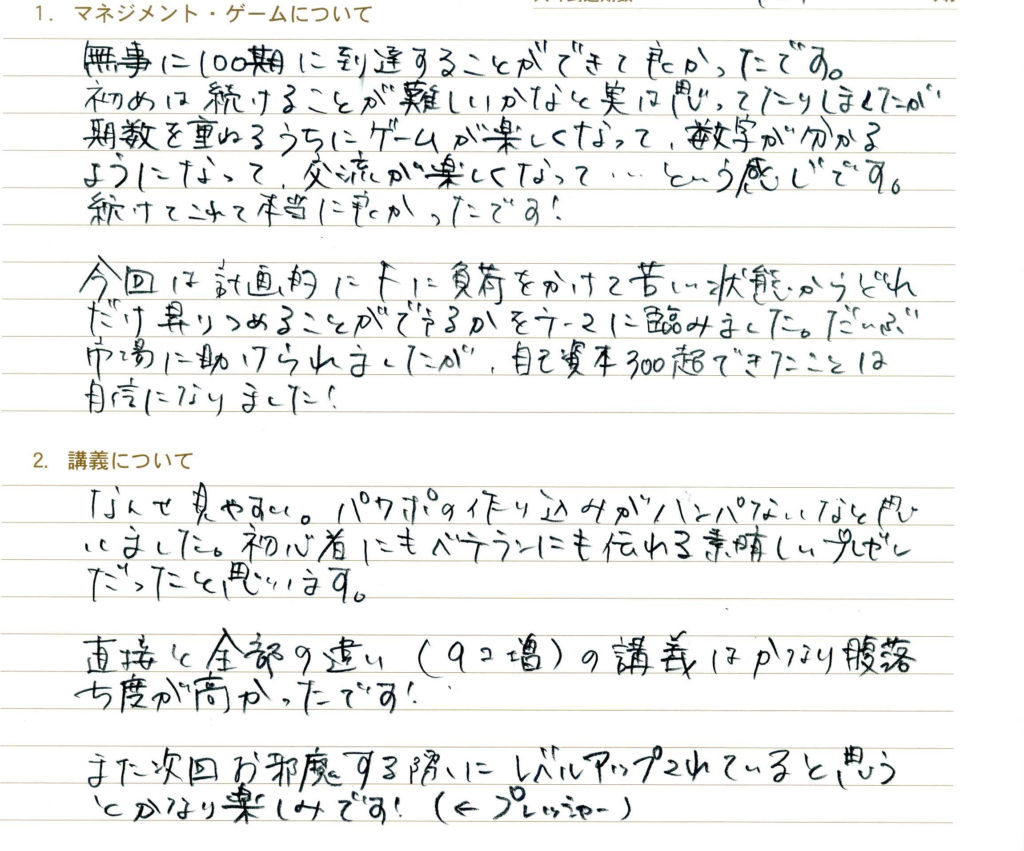 1. マネジメント・ゲームについて
無事に100期に到達することができて良かったです。
初めは続けることが難しいかなと実は思ってたりしましたが
期数を重ねるうちにゲームが楽しくなって、数字が分かる
ようになって、交流が楽しくなって…という感じです。
続けてこれて本当に良かったです!
今回は計画的にFに負荷をかけて苦しい状態からどれ
だけ昇りつめることができるかをテーマに臨みました。だいぶ
市場に助けられましたが、自己資本300超できたことは
自信になりました!
2. 講義について
なんせ見やすい。パワポの作り込みがハンパないなと思
いました。初心者にもベテランにも伝わる素晴しいプレゼン
だったと思います。
直接と全部の違い(Q2増)の講義はかなり腹落
ち度が高かったです!
また次回お邪魔する際にレベルアップされていると思う
とかなり楽しみです!(←プレッシャー)